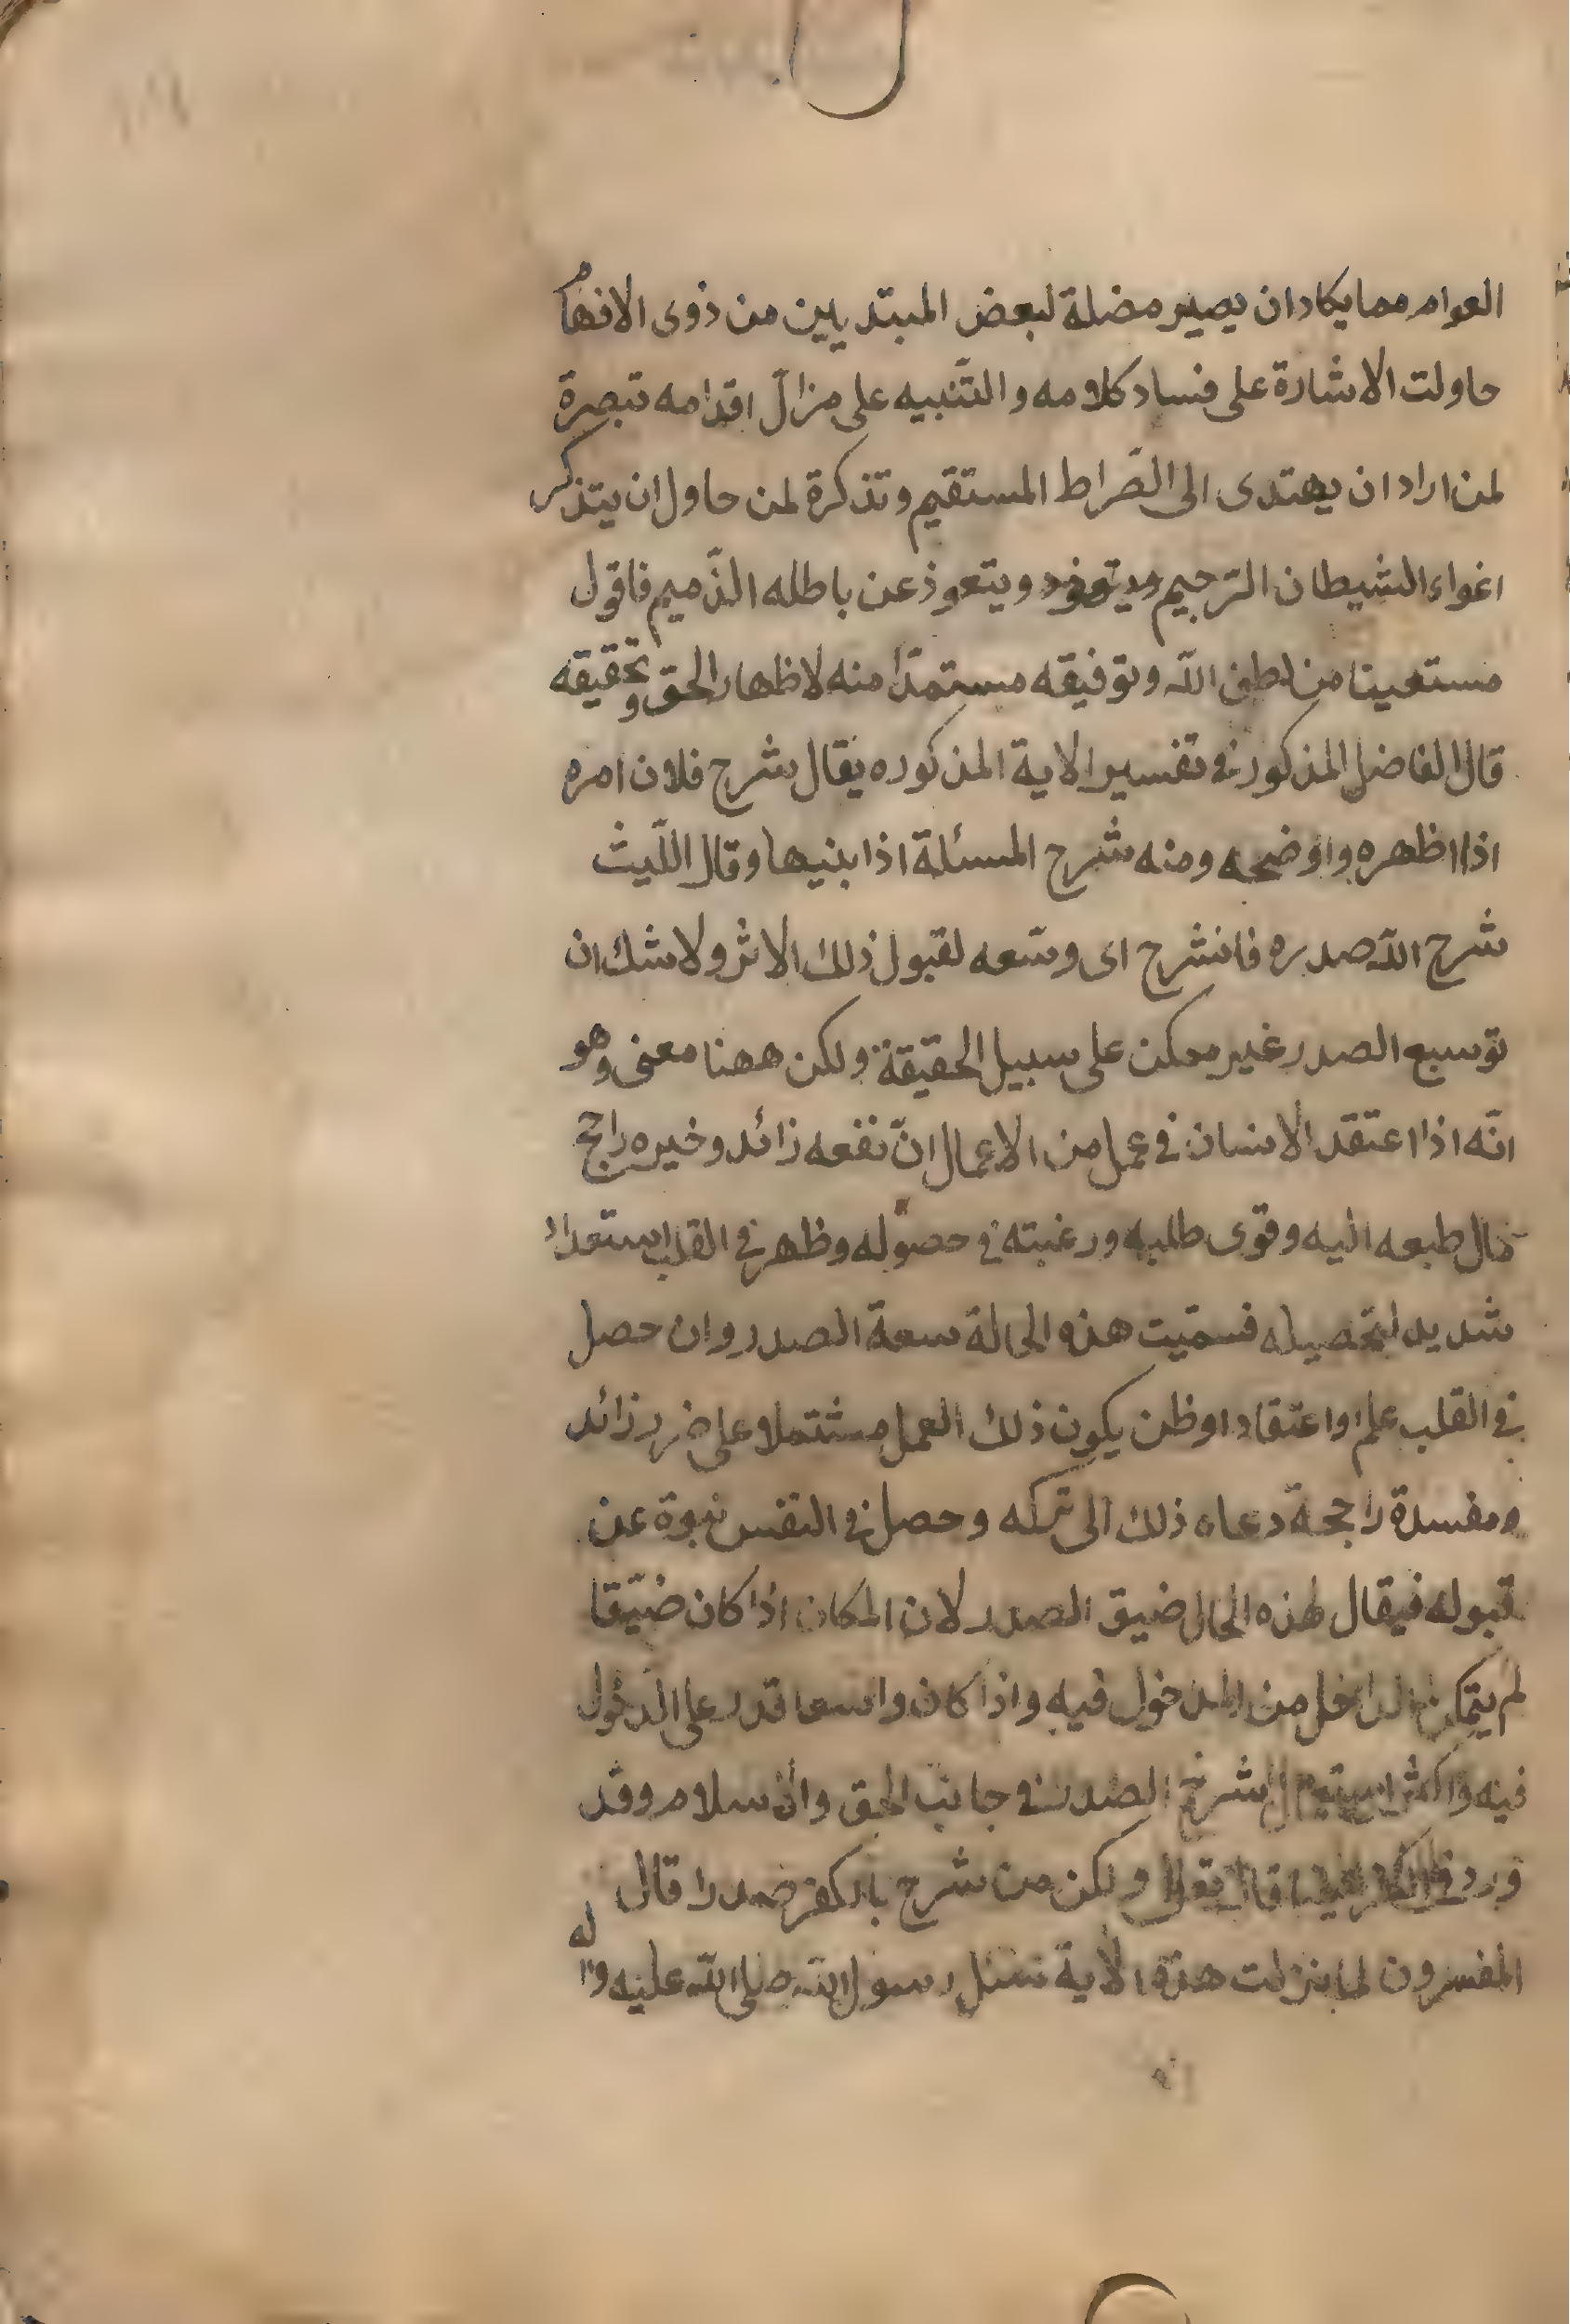 العوام مما يكاد ان يصير مضلة لبعض المبتديين من ذوى الافهام
حاولت الاشارة على فساد كلامه والتّنبيه على مزالّ اقدامه تبصرة
لمن اراد ان يهتدى الى الصّراط المستقيم وتذكرة لمن حاول ان يتذكر
اغواء الشيطان الرّجيم ويتعوذ عن باطله الذّميم فاقول
مستعينا من لطف الله وتوفيقه مستمدّا منه لاظهار الحق وتحقيقه
قال الفاضل المذكور فى تفسير الاية المذكوره يقال شرح فلان امره
اذا اظهره واوضحه ومنه شرح المسئلة اذا بنيها وقال اللّيث
شرح الله صدره فانشرح اى وسّعه لقبول ذلك الاثر ولا شك ان
توسيع الصدر غير ممكن على سبيل الحقيقة ولكن ههنا معنى وهو
انّه اذا اعتقد الانسان فى عمل من الاعمال انّ نفعه زائد وخيره راجح
مال طبعه اليه وقوى طلبه ورغبته فى حصوله وظهر فى القلب استعداد
شديد لتحصيله فسمّيت هذه الحالة سعة الصدر وان حصل
فى القلب علم او اعتقاد او ظن يكون ذلك العمل مشتملا على ضرر زائد
ومفسدة راجحة دعاه ذلك الى تركه وحصل فى النفس نبوة عن
قبوله فيقال لهذه الحال ضيق الصدر لان المكان اذا كان ضيّقا
لم يتمكن الداخل من الدخول فيه واذا كان واسعا قدر على الدّخول
فيه واكثر استعمال شرح الصدر فى جانب الحق والاسلام وقد
ورد فى الكفر ايضا قال تعالى ولكن من شرح بالكفر صدرا قال
المفسرون لما نزلت هذه الاية سئل رسول الله صلى الله عليه واله